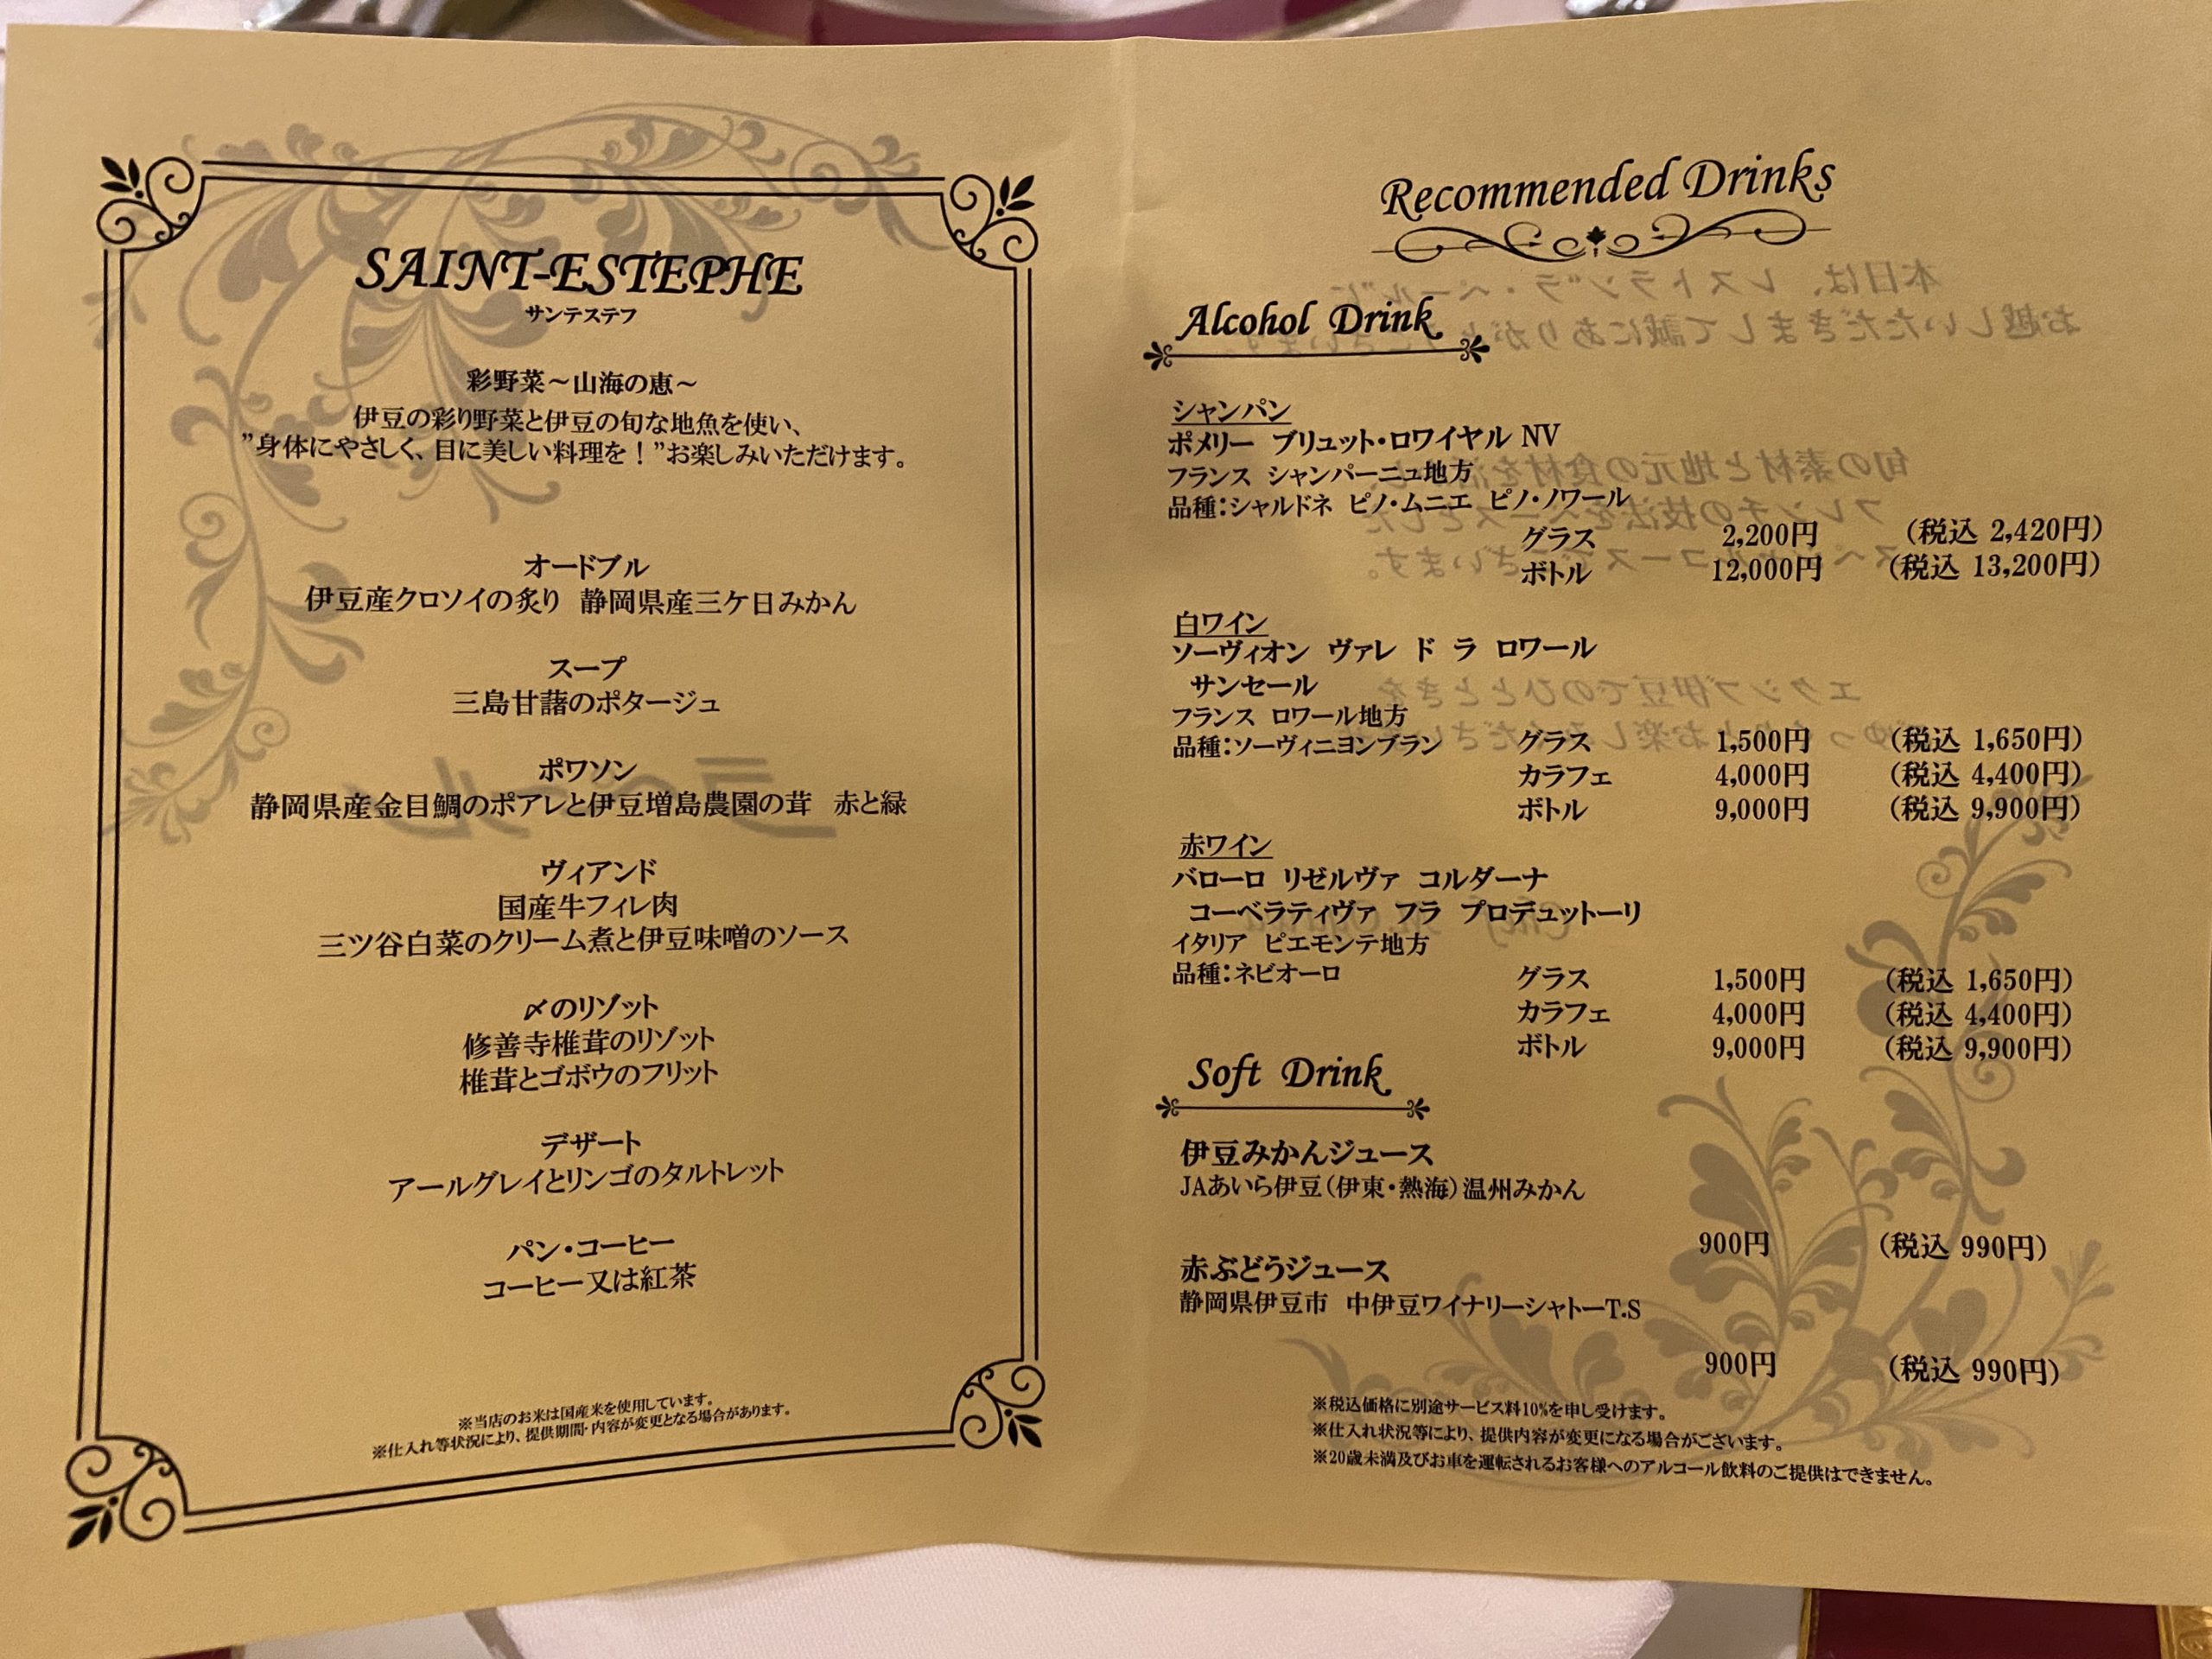 SAINT-ESTEPHE
サンテステフ
彩野菜～山海の恵～
伊豆の彩り野菜と伊豆の旬な地魚を使い、
”身体にやさしく、目に美しい料理を！”お楽しみいただけます。
オードブル
伊豆産クロソイの炙り 静岡県産三ケ日みかん
スープ
三島甘藷のポタージュ
ポワソン
静岡県産金目鯛のポアレと伊豆増島農園の茸 赤と緑
ヴィアンド
国産牛フィレ肉
三ツ谷白菜のクリーム煮と伊豆味噌のソース
〆のリゾット
修善寺椎茸のリゾット
椎茸とゴボウのフリット
デザート
アールグレイとリンゴのタルトレット
パン・コーヒー
コーヒー又は紅茶
※当店のお米は国産米を使用しています。
※仕入れ等状況により、提供期間・内容が変更となる場合があります。
Recommended Drinks
Alcohol Drink
シャンパン
ポメリー ブリュット・ロワイヤル NV
フランス シャンパーニュ地方
品種：シャルドネ ピノ・ムニエ ピノ・ノワール
グラス 2,200円 (税込 2,420円)
ボトル 12,000円 (税込 13,200円)
白ワイン
ソーヴィオン ヴァレ ド ラ ロワール
サンセール
フランス ロワール地方
品種：ソーヴィニヨンブラン グラス 1,500円 (税込 1,650円)
カラフェ 4,000円 (税込 4,400円)
ボトル 9,000円 (税込 9,900円)
赤ワイン
バローロ リゼルヴァ コルダーナ
コーペラティヴァ フラ プロデュットーリ
イタリア ピエモンテ地方
品種：ネビオーロ グラス 1,500円 (税込 1,650円)
カラフェ 4,000円 (税込 4,400円)
ボトル 9,000円 (税込 9,900円)
Soft Drink
伊豆みかんジュース
JAあいら伊豆（伊東・熱海）温州みかん
900円 (税込 990円)
赤ぶどうジュース
静岡県伊豆市 中伊豆ワイナリーシャトーT.S
900円 (税込 990円)
※税込価格に別途サービス料10%を申し受けます。
※仕入れ状況等により、提供内容が変更になる場合がございます。
※20歳未満及びお車を運転されるお客様へのアルコール飲料のご提供はできません。